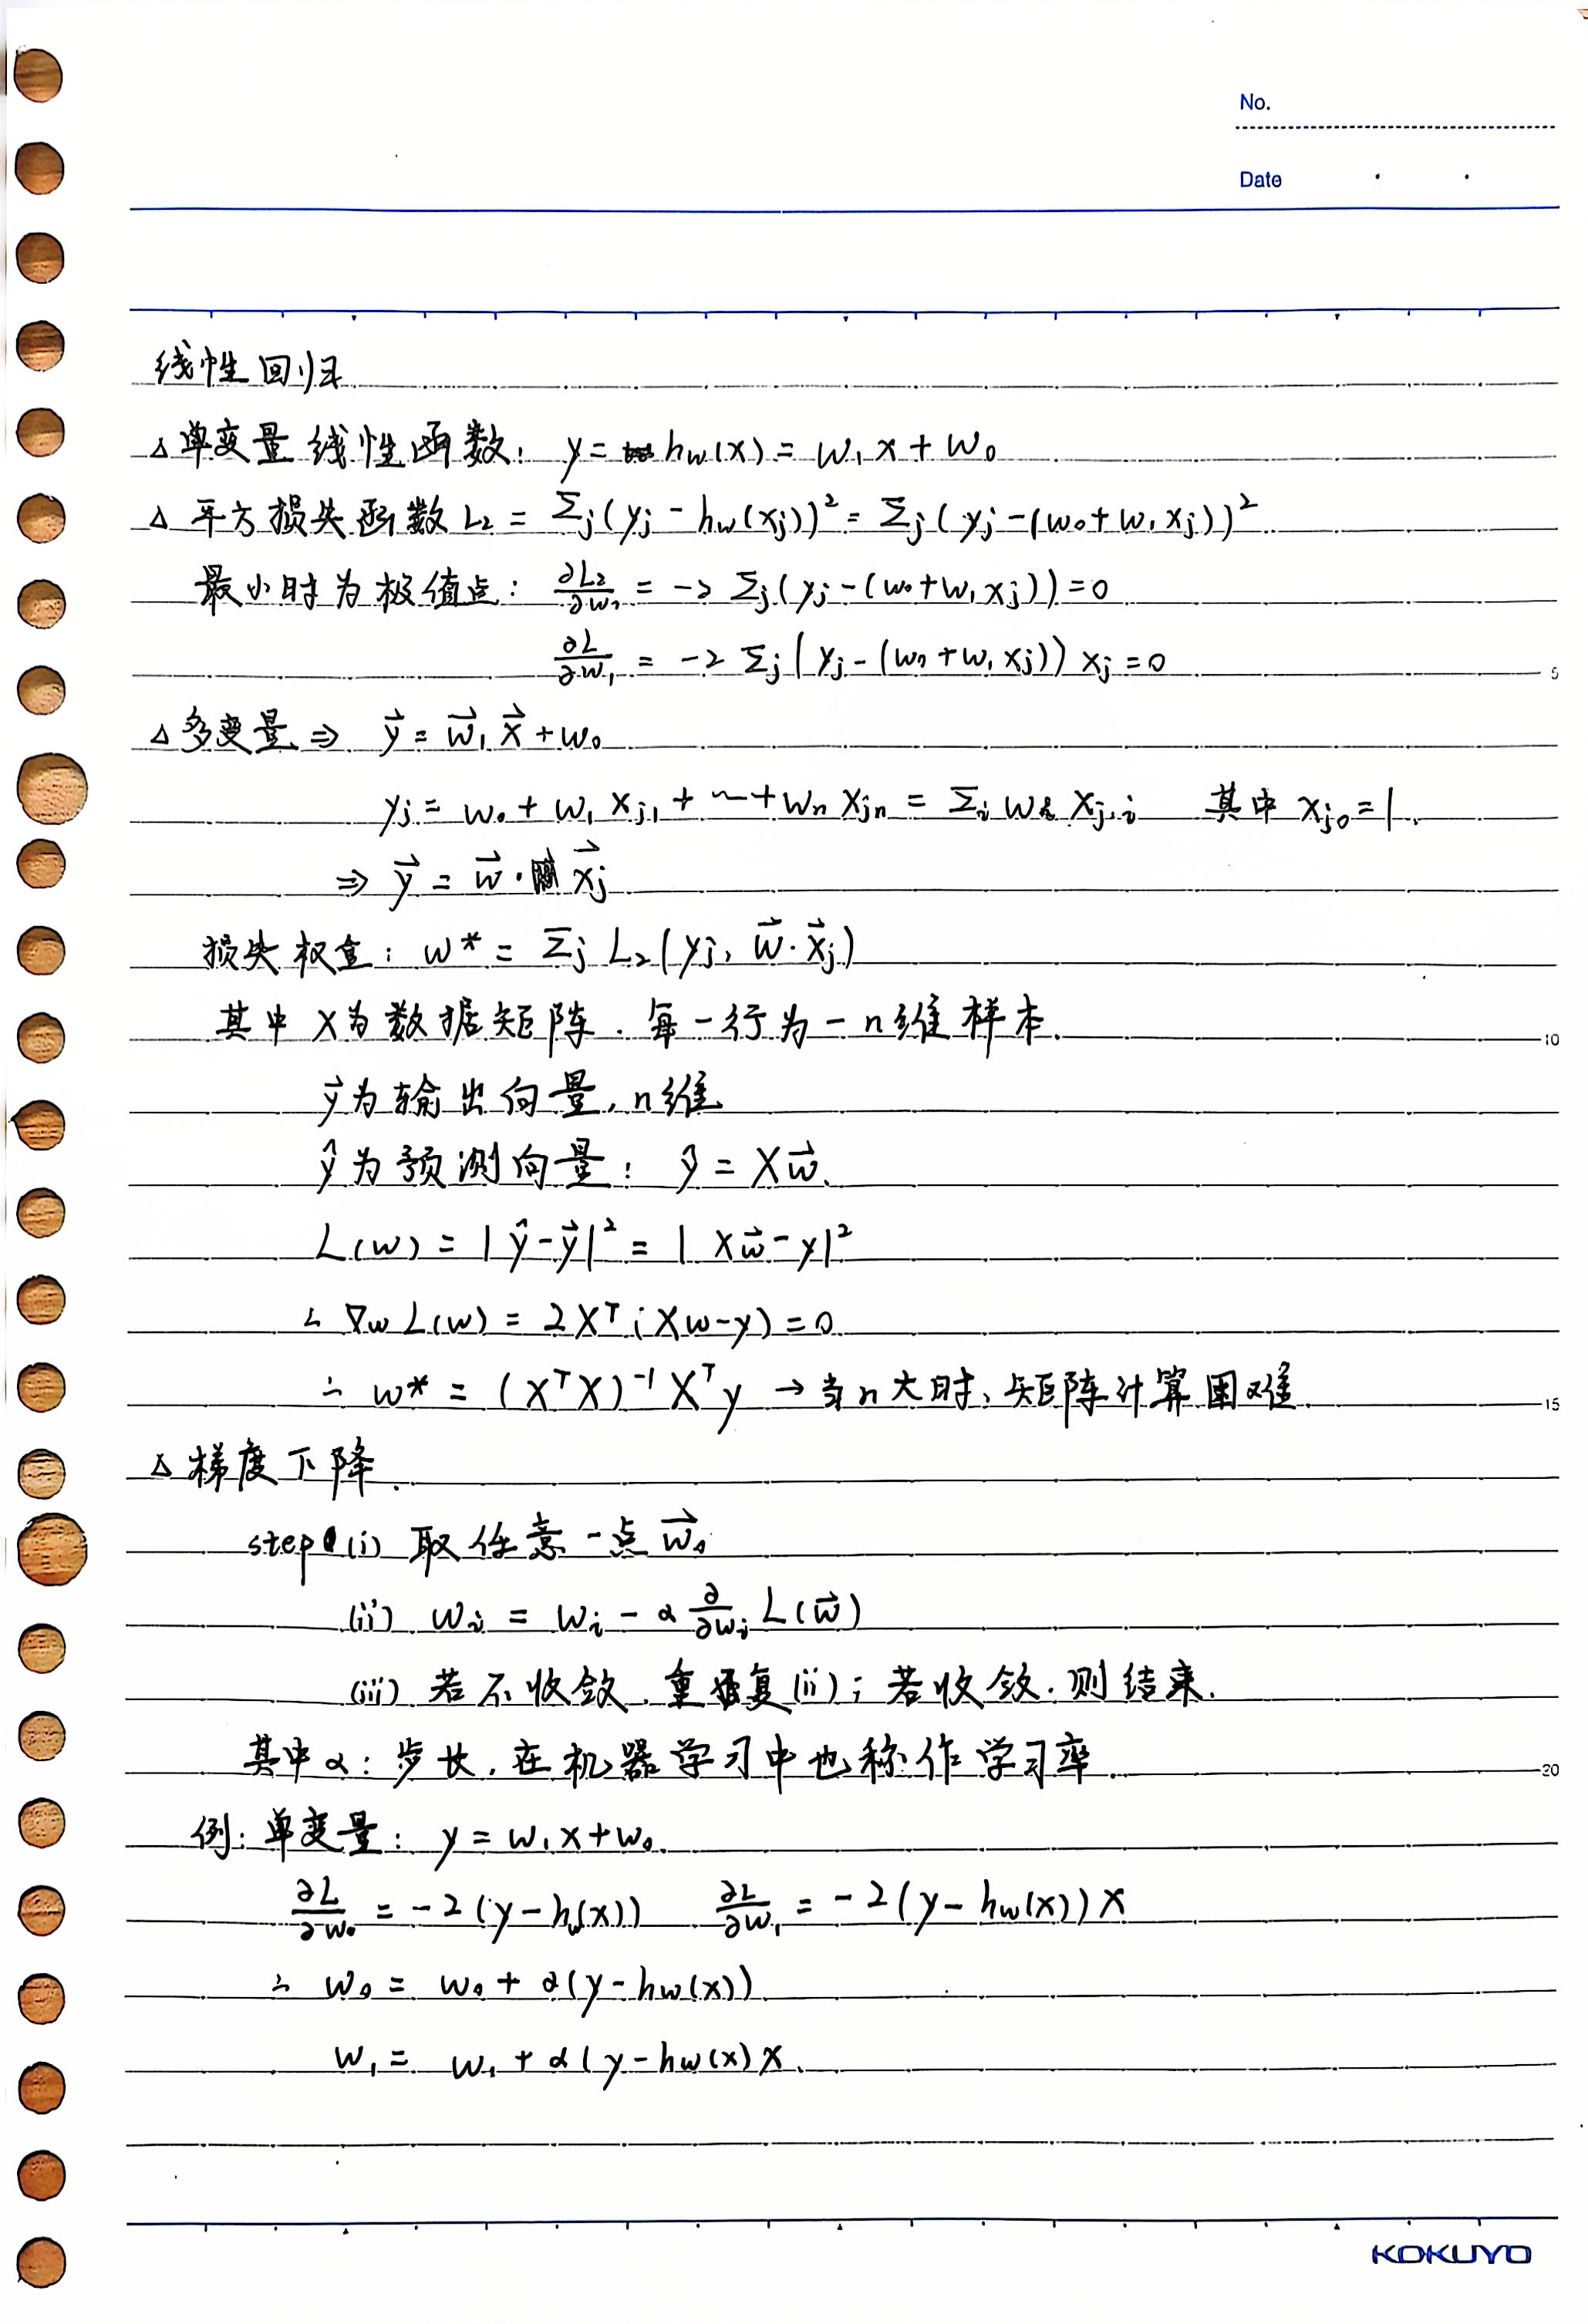 No.
Date
线性回归
△单变量线性函数: y = h_w(x) = w₁x + w₀
△ 平方损失函数 L₂ = Σj(yj - h_w(xj))² = Σj(yj - (w₀ + w₁xj))²
最小时为极值点: ∂L₂/∂w₀ = -2 Σj(yj - (w₀ + w₁xj)) = 0
∂L/∂w₁ = -2 Σj(yj - (w₀ + w₁xj)) xj = 0
5
△多变量 ⇒ y⃗ = w⃗₁x⃗ + w₀
yj = w₀ + w₁xj₁ + ⋯ + wₙxjₙ = Σi wi xj,i 其中 xj₀ = 1.
⇒ y⃗ = w⃗ · x⃗j
损失权重: w* = Σj L₂(yj, w⃗·x⃗j)
其中 X为数据矩阵. 每一行为一n维样本.
10
y⃗为输出向量, n维
ŷ为预测向量: ŷ = Xw⃗.
L(w) = |ŷ - y⃗|² = |Xw⃗ - y|²
∴ ∇w L(w) = 2Xᵀ(Xw - y) = 0
∴ w* = (XᵀX)⁻¹Xᵀy → 当n大时, 矩阵计算困难.
15
△ 梯度下降.
step (i) 取任意一点 w⃗₀
(ii) wi = wi - α ∂/∂wi L(w⃗)
(iii) 若不收敛, 重复(ii); 若收敛, 则结束.
其中α: 步长, 在机器学习中也称作学习率.
20
例: 单变量: y = w₁x + w₀.
∂L/∂w₀ = -2(y - h_w(x)) ∂L/∂w₁ = -2(y - h_w(x)) x
∴ w₀ = w₀ + α(y - h_w(x))
w₁ = w₁ + α(y - h_w(x) x.
KOKUYO